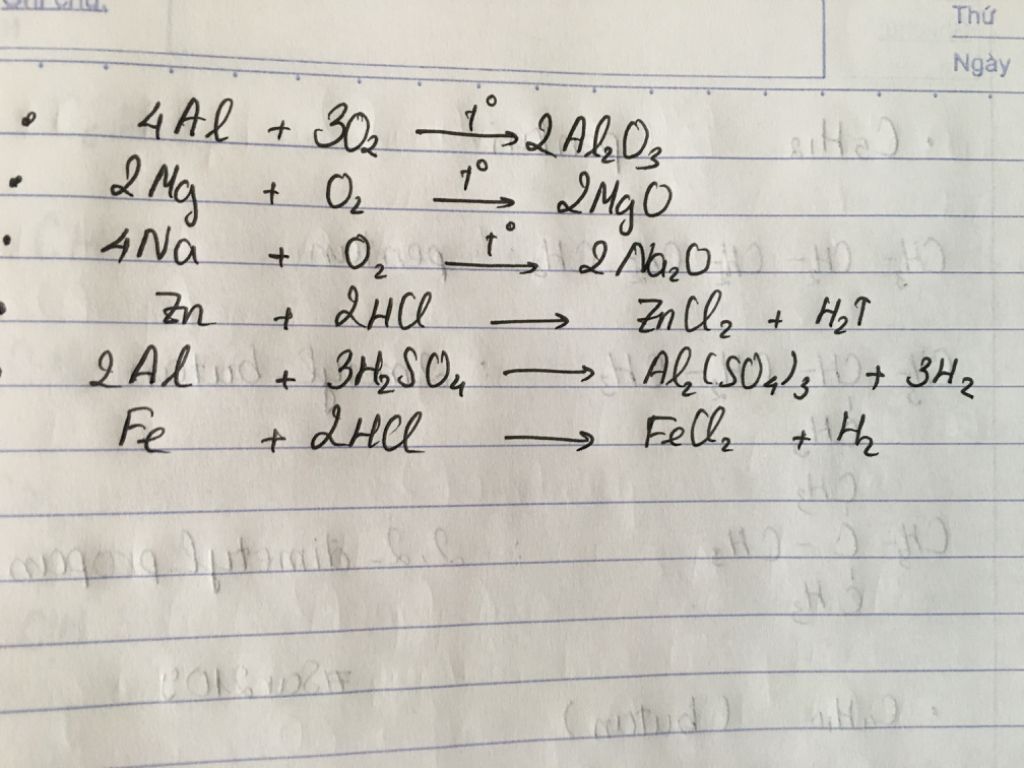 Thứ
Ngày
• 4Al + 3O₂ —t°→ 2Al₂O₃
• 2Mg + O₂ —t°→ 2MgO
• 4Na + O₂ —t°→ 2Na₂O
• Zn + 2HCl ⟶ ZnCl₂ + H₂↑
• 2Al + 3H₂SO₄ ⟶ Al₂(SO₄)₃ + 3H₂
Fe + 2HCl ⟶ FeCl₂ + H₂